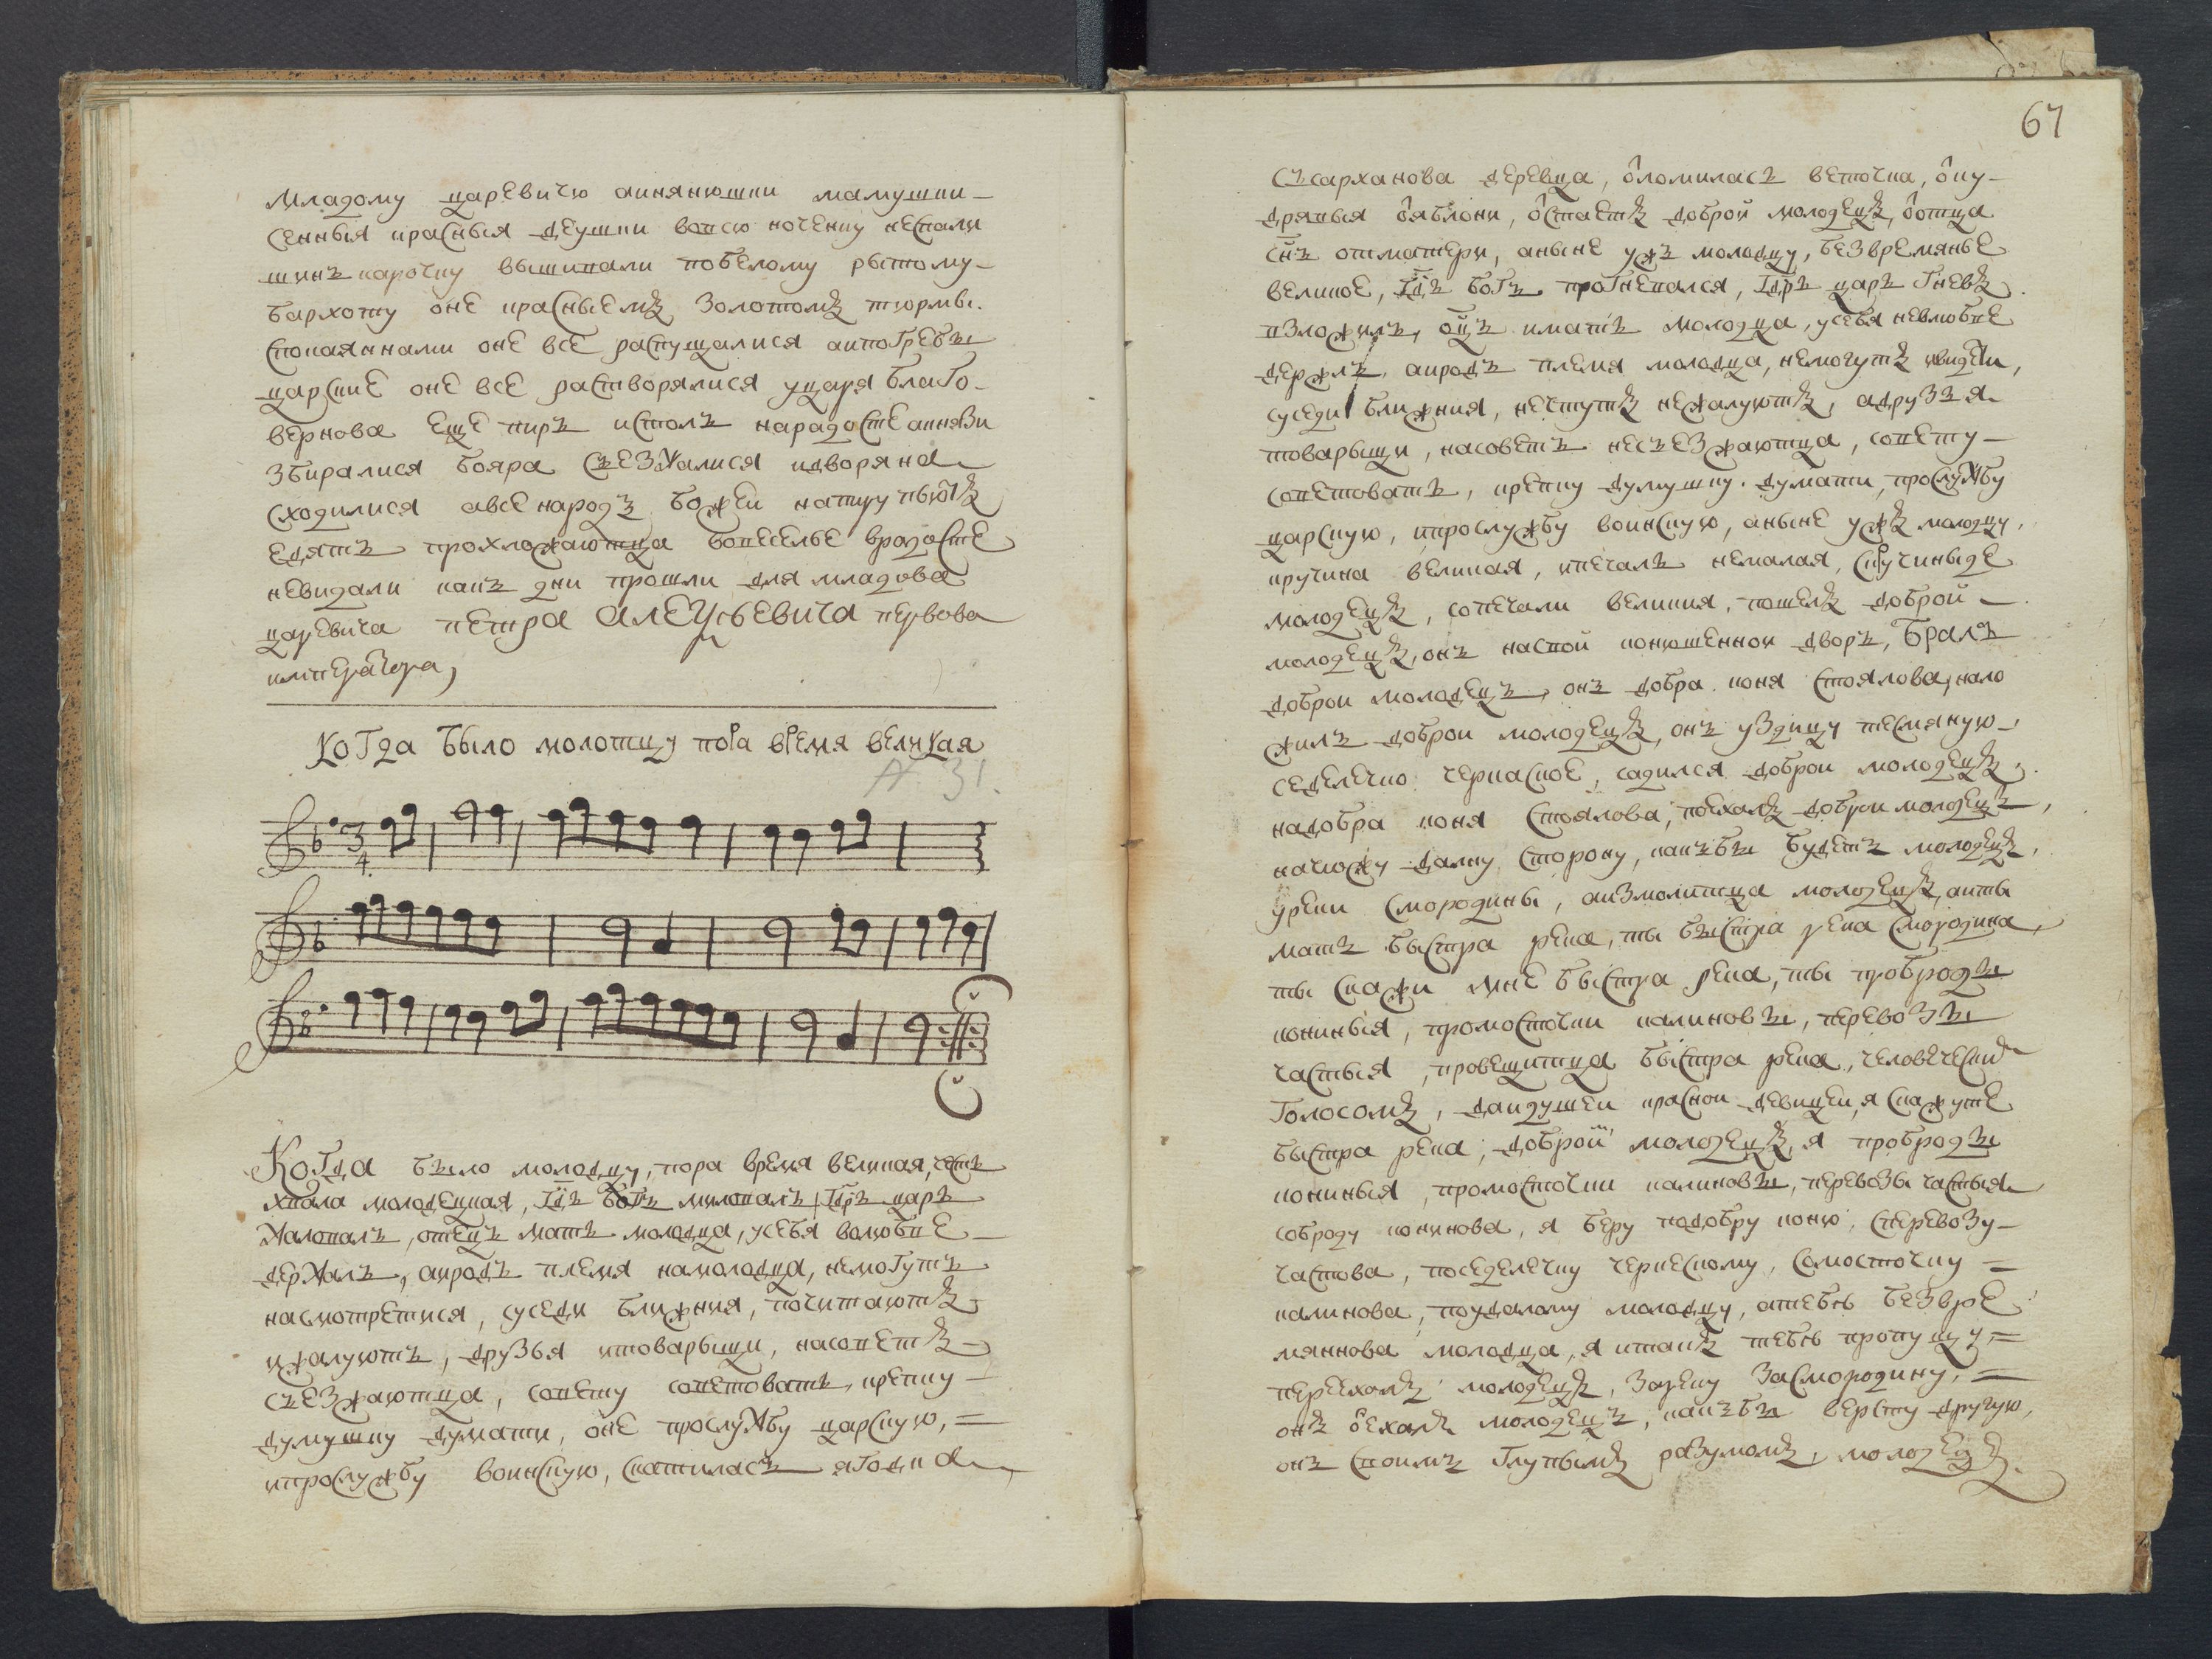 младому царевичю аинянюшки мамушки
сенныя красныя деушки вовсю ноченку неспали
шинъ карочку вышивали побелому рытому
бархоту оне красныемъ золотомъ тюрмы
спокаяннами оне все распущалися аипогребы
царские оне все растворялися уцаря благо-
вернова еще пиръ истолъ нарадосте аиннязи
збиралися бояра съезжалися идворяна
сходилися авсе народъ божеи напиру пьютъ
едятъ прохложаютца вовеселье врадосте
невидали какъ дни прошли для младова
царевича петра алеѯѣевича первова
императора,
Когда было молотцу пора время великая
№ 31.
3
4
Когда было молодцу, пора время великая, честь
хвала молодецкая, гдь богъ миловалъ, гдрь царь
жаловалъ, отецъ мать молодца, усебя волюбве
держалъ, аиродъ племя намолодца, немогутъ
насмотретися, суседи ближния, почитаютъ
ижалуютъ, друзья итоварыщи, насоветъ
съезжаютца, совету советовать, крепку
думушку думати, оне прослужбу царскую,
ипрослужбу воинскую, скатиласъ ягодка
67
съсарханова деревца, ѿломиласъ веточка, ѿку-
дрявыя ѿяблони, ѿстаетъ доброй молодецъ, ѿотца
снъ отматери, аныне ужъ молодцу, безвремянье
великое, гдь богъ прогневался, гдрь царь гневъ
възложилъ, оцъ имать молодца, усебя невлюбве
держлъ, аиродъ племя молодца, немогутъ видети,
суседи ближния, нечтутъ нежалуютъ, адрузъя
товарыщи, насоветъ несъезжаютца, совету
советовать, крепку думушку думати, прослужбу
царскую, ипрослужбу воинскую, аныне ужъ молодцу,
кручина великая, ипечаль немалая, скручиныде
молодецъ, сопечали великия, пошелъ доброй
молодецъ, онъ насвой конюшеннои дворъ, бралъ
доброи молодецъ, онъ добра коня стоялова, нало
жилъ доброи молодецъ, онъ уздицу тесмяную
седелечко черкаское, садился доброи молодецъ
надобра коня стоялова, поехалъ доброи молодецъ,
начюжу далну сторону, какъбы будетъ молодецъ,
уреки смородины, аизмолитца молодецъ, аиты
мать быстра река, ты быстра река смородина,
ты скажи мне быстра река, ты проброды
кониныя, промосточки калиновы, перевозы
частыя, провещитца быстра река, человеческимъ
голосомъ, даидушеи краснои девицеи, я скажуте
быстра река, доброи молодецъ, я проброды
кониныя, промосточки калиновы, перевозы частыя
соброду конинова, я беру подобру коню, сперевозу
частова, поседелечку черкескому, сомосточку
калинова, поудалому молодцу, атебѣ безвре
мяннова молодца, я итакъ тебѣ пропущу,
переехалъ молодецъ, зареку засмородину,
онъ ѿехалъ молодецъ, какъбы версту другую,
онъ своимъ глупымъ разумомъ, молодецъ.